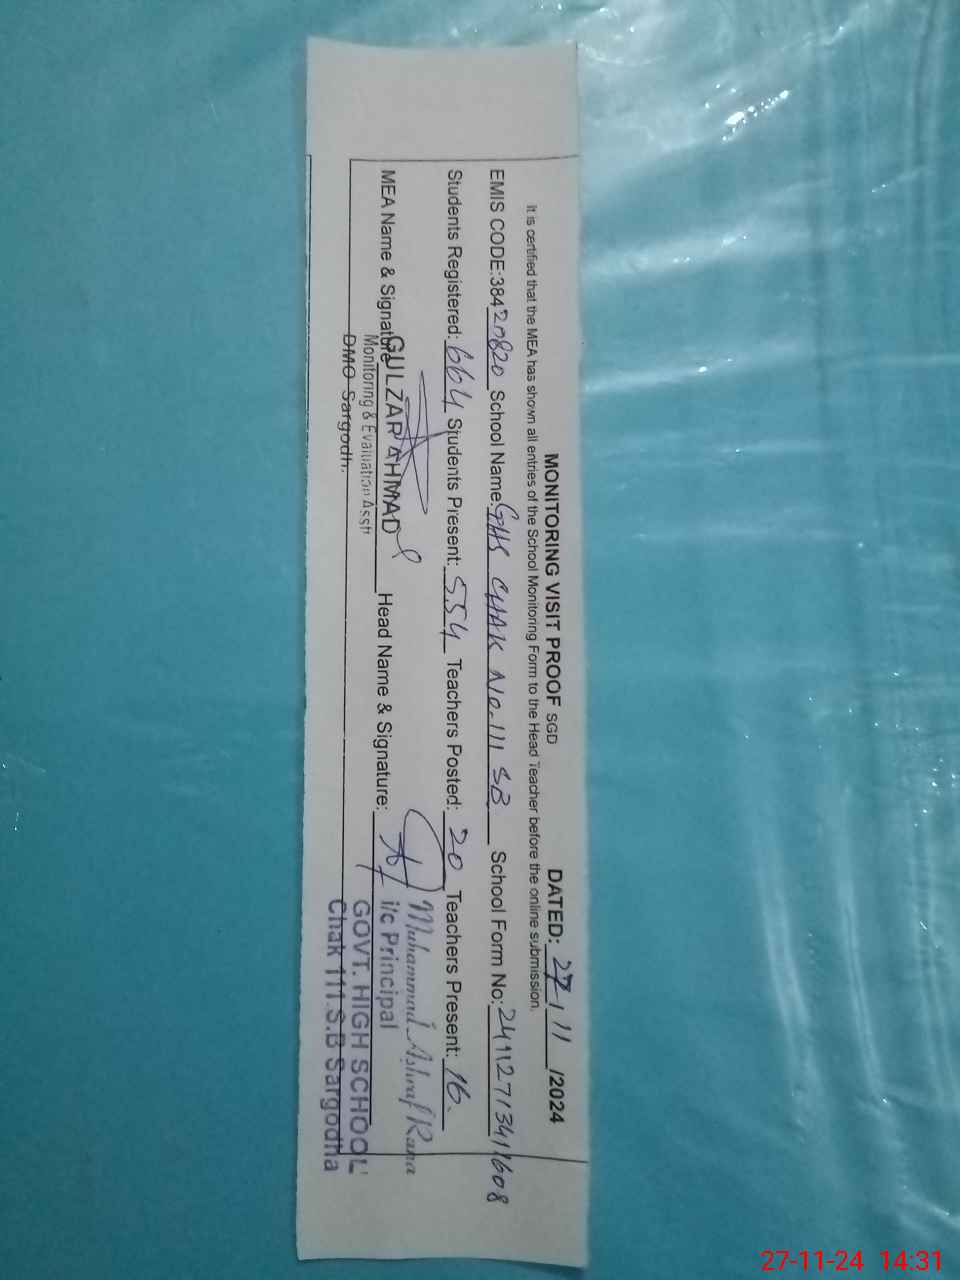 MONITORING VISIT PROOF SGD DATED: 27/11/2024
It is certified that the MEA has shown all entries of the School Monitoring Form to the Head Teacher before the online submission.
EMIS CODE:38420820 School Name: GHS CHAK No. 111 SB School Form No: 24112713411608
Students Registered: 664 Students Present: 554 Teachers Posted: 20 Teachers Present: 16.
MEA Name & Signature GULZAR AHMAD Head Name & Signature:
Monitoring & Evaluation Asstt
DMO Sargodh.
Muhammad Ashraf Rana
i/c Principal
GOVT. HIGH SCHOOL
Chak 111.S.B Sargodha
27-11-24 14:31